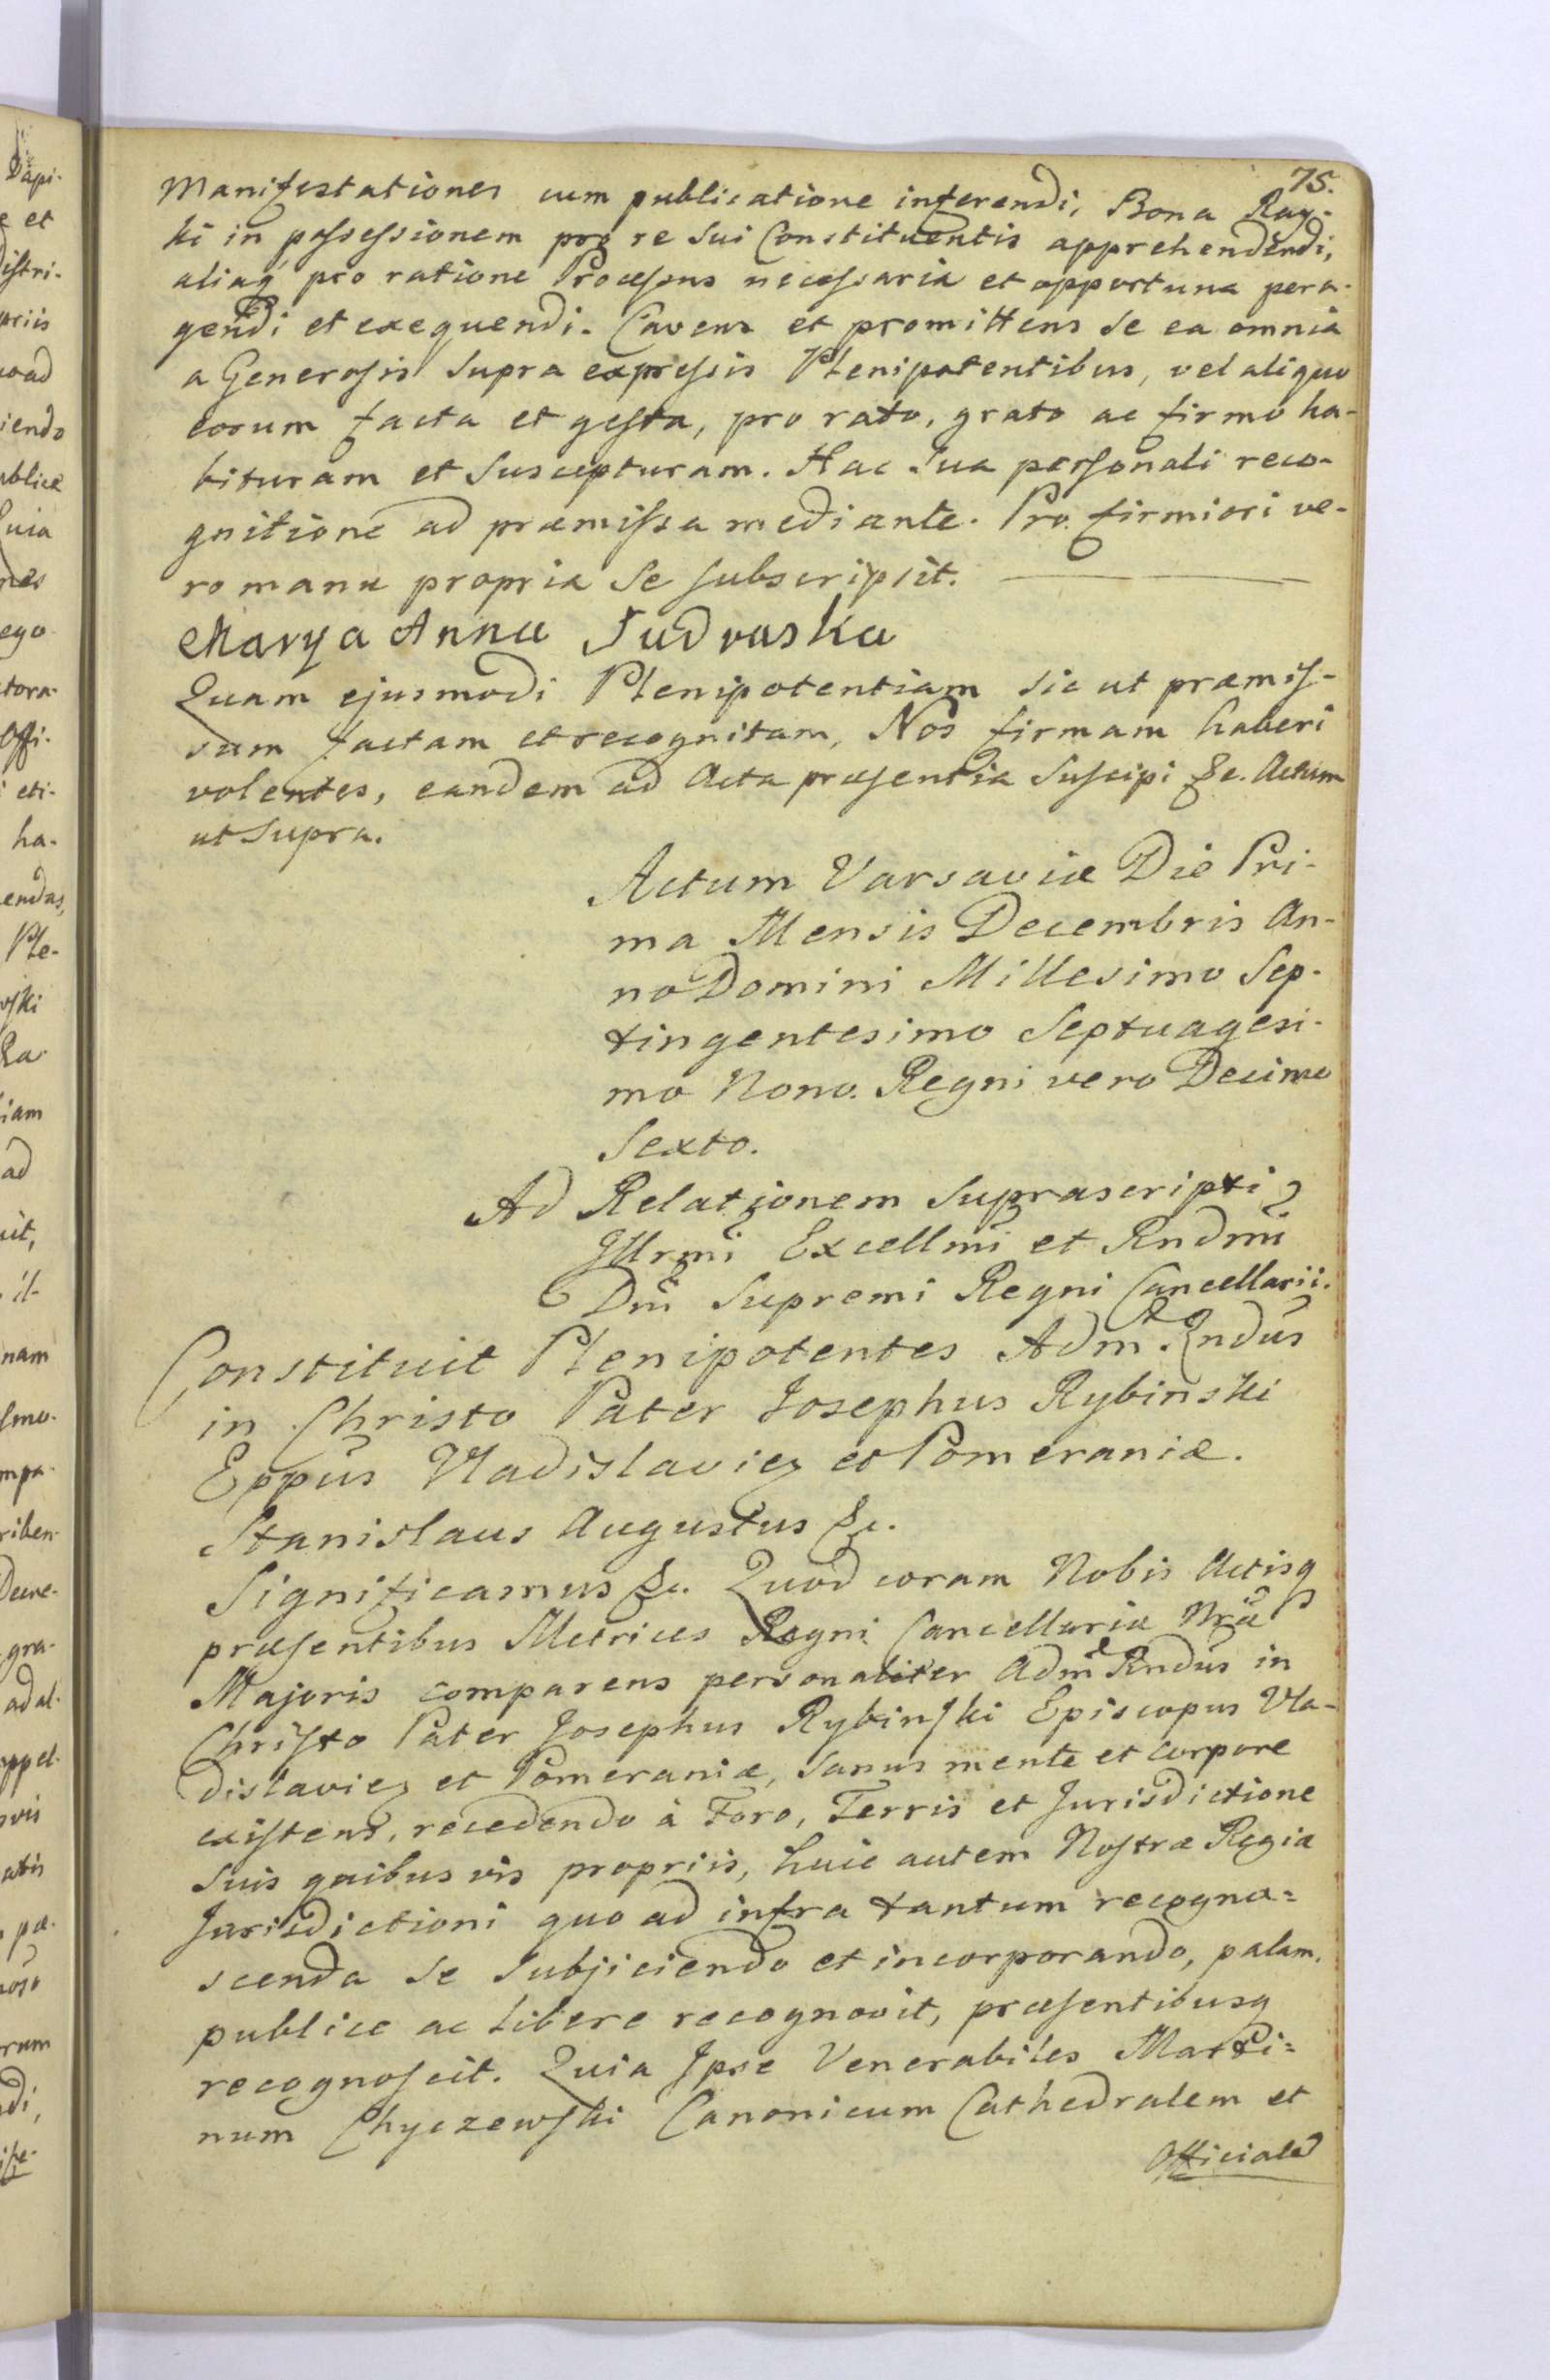 75.
Manifestationes cum publicatione inferendi, Bona Ray-
ki in possessionem pro re sui Constituentis apprehendendi,
aliaq pro ratione Processus necessaria et opportuna pera-
gendi et exequendi. Cavens et promittens se ea omnia
a Generosis supra expressis Plenipotentibus, vel aliquo
eorum facta et gesta, pro rato, grato ac firmo ha-
bituram et suscepturam. Hac sua personali reco-
gnitione ad præmissa mediante. Pro firmiori ve-
ro manu propria se subscripsit.
Marya Anna Sudraska
Quam ejusmodi Plenipotentiam sic ut præmis-
sum factam et recognitam, Nos firmam haberi
volentes, eandem ad Acta præsentia suscipi &c. Actum
ut supra.
Actum Varsaviæ Die Pri-
ma Mensis Decembris An-
no Domini Millesimo Sep-
tingentesimo Septuagesi-
mo Nono. Regni vero Decimo
Sexto.
Ad Relationem suprascripti
Illrmi Excellmi et Rndmi
Dni Supremi Regni Cancellarii.
Constituit Plenipotentes Adm. Rndus
in Christo Pater Josephus Rybinski
Eppus Vladislavien et Pomeraniæ.
Stanislaus Augustus &c.
Significamus &c. Quod coram Nobis Actisq
præsentibus Metrices Regni Cancellariæ Nræ
Majoris comparens personaliter Adm Rndus in
Christo Pater Josephus Rybinski Episcopus Vla-
dislavien et Pomeraniæ, sanus mente et corpore
existens, recedendo à Foro, Terris et Jurisdictione
suis quibus vis propriis, huic autem Nostræ Regiæ
Jurisdictioni quo ad infra tantum recogno=
scenda se subjiciendo et incorporando, palam.
publice ac libere recognovit, præsentibusq
recognoscit. Quia Ipse Venerabiles Marti=
num Chyczewski Canonicum Cathedralem et
Officialem